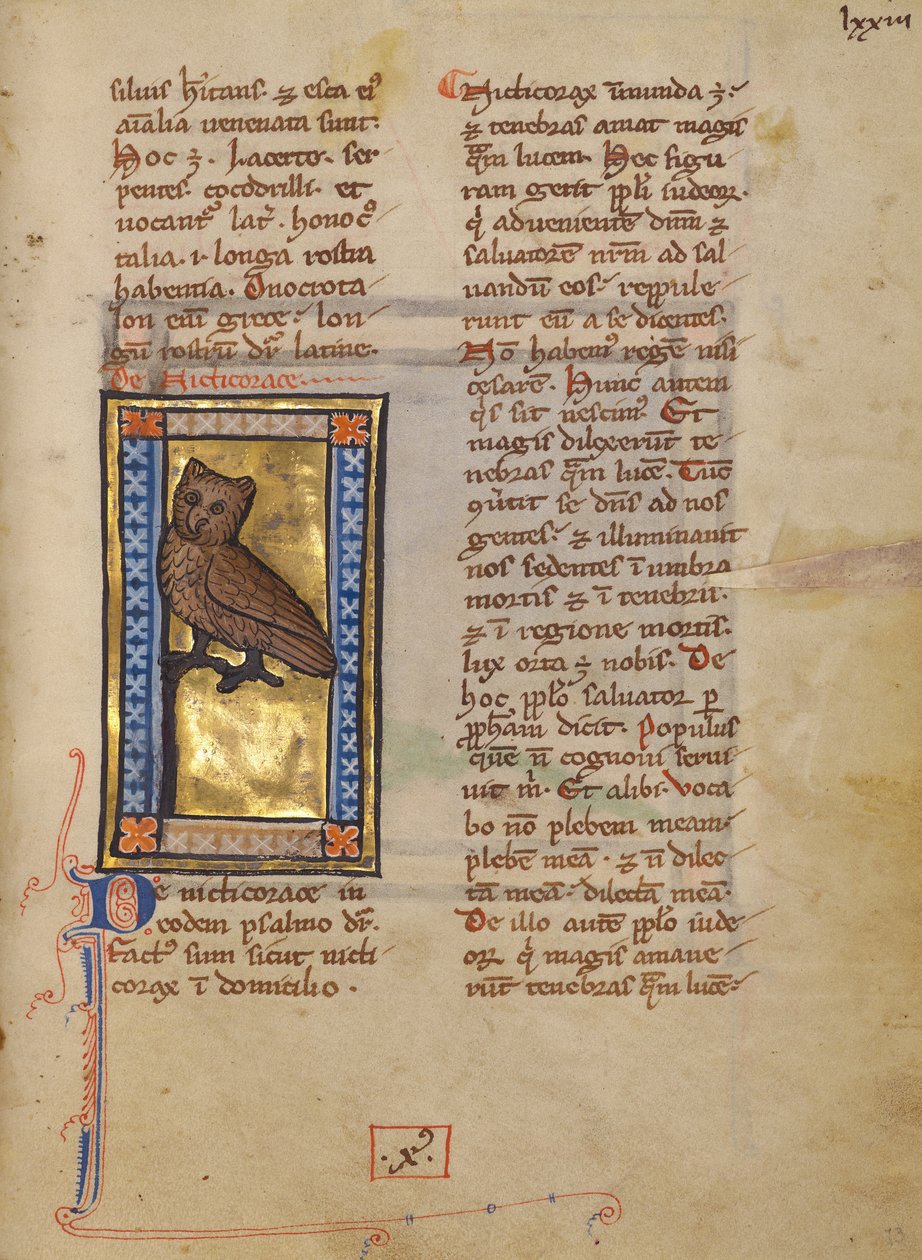 lxxiii
siluis h̓itans. ⁊ esca ei᾽
aīalia uenenata sunt.
Hoc ē. Lacerte. ser
pentes. cocodrilli. et
uocantᷣ lat̓. honoc᾽
talia. i. longa rostra
habentia. Onocrota
lon enī grece. lon
gū rostrū dr̄ latine.
De Nicticorace.
De nicticorace in
eodem psalmo dr̄.
Fact᾽ sum sicut nicti
corax ī domicilio.
Nicticorax īmunda ē.
⁊ tenebras amat magis
q̄m lucem. Hec figu
ram gerit pp̄li iudeoꝝ.
q̓ aduenientē dn̄m ⁊
saluatorē nr̄m ad sal
uandū eos. reppule
runt eū a se dicentes.
Nō habem᾽ regē nisi
cesarē. Hunc autem
q̓s sit nescim᾽. Et
magis dilexerūt te
nebras q̄m lucē. Tūc
ꝯu̓tit se dn̄s ad nos
gentes. ⁊ illuminauit
nos sedentes ī umbra
mortis ⁊ ī tenebris.
⁊ ī regione mortis.
lux orta ē nobis. De
hoc pp̄lo saluator ꝑ
ꝓph̄am dicit. Populus
quē n̄ cognoui serui
uit m̓. Et alibi. Voca
bo nō plebem meam.
plebē meā. ⁊ n̄ dilec
tā meā. dilectā meā.
De illo autē pp̄lo iude
oꝝ q̓ magis amaue
rūt tenebras q̄m lucē.
.x᾽.
73